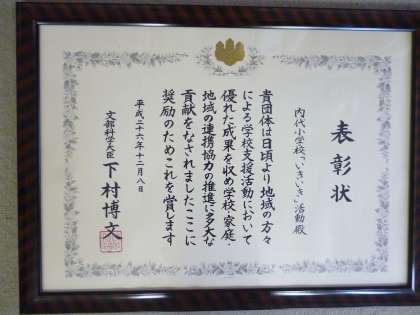 表彰状
内代小学校「いきいき」活動殿
貴団体は日頃より地域の方々
による学校支援活動において
優れた成果を収め学校、家庭、
地域の連携協力の推進に多大な
貢献をなされましたここに
奨励のためこれを賞します
平成二十六年十二月八日
文部科学大臣 下村博文